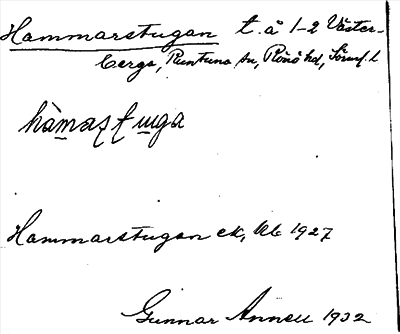 Hammarstugan t. å 1-2 Väster-
berga, Runtuna sn, Rönö hd, Sörml. l
hàmaʂʈɯga
Hammarstugan ek, Ub 1927
Gunnar Annell 1932